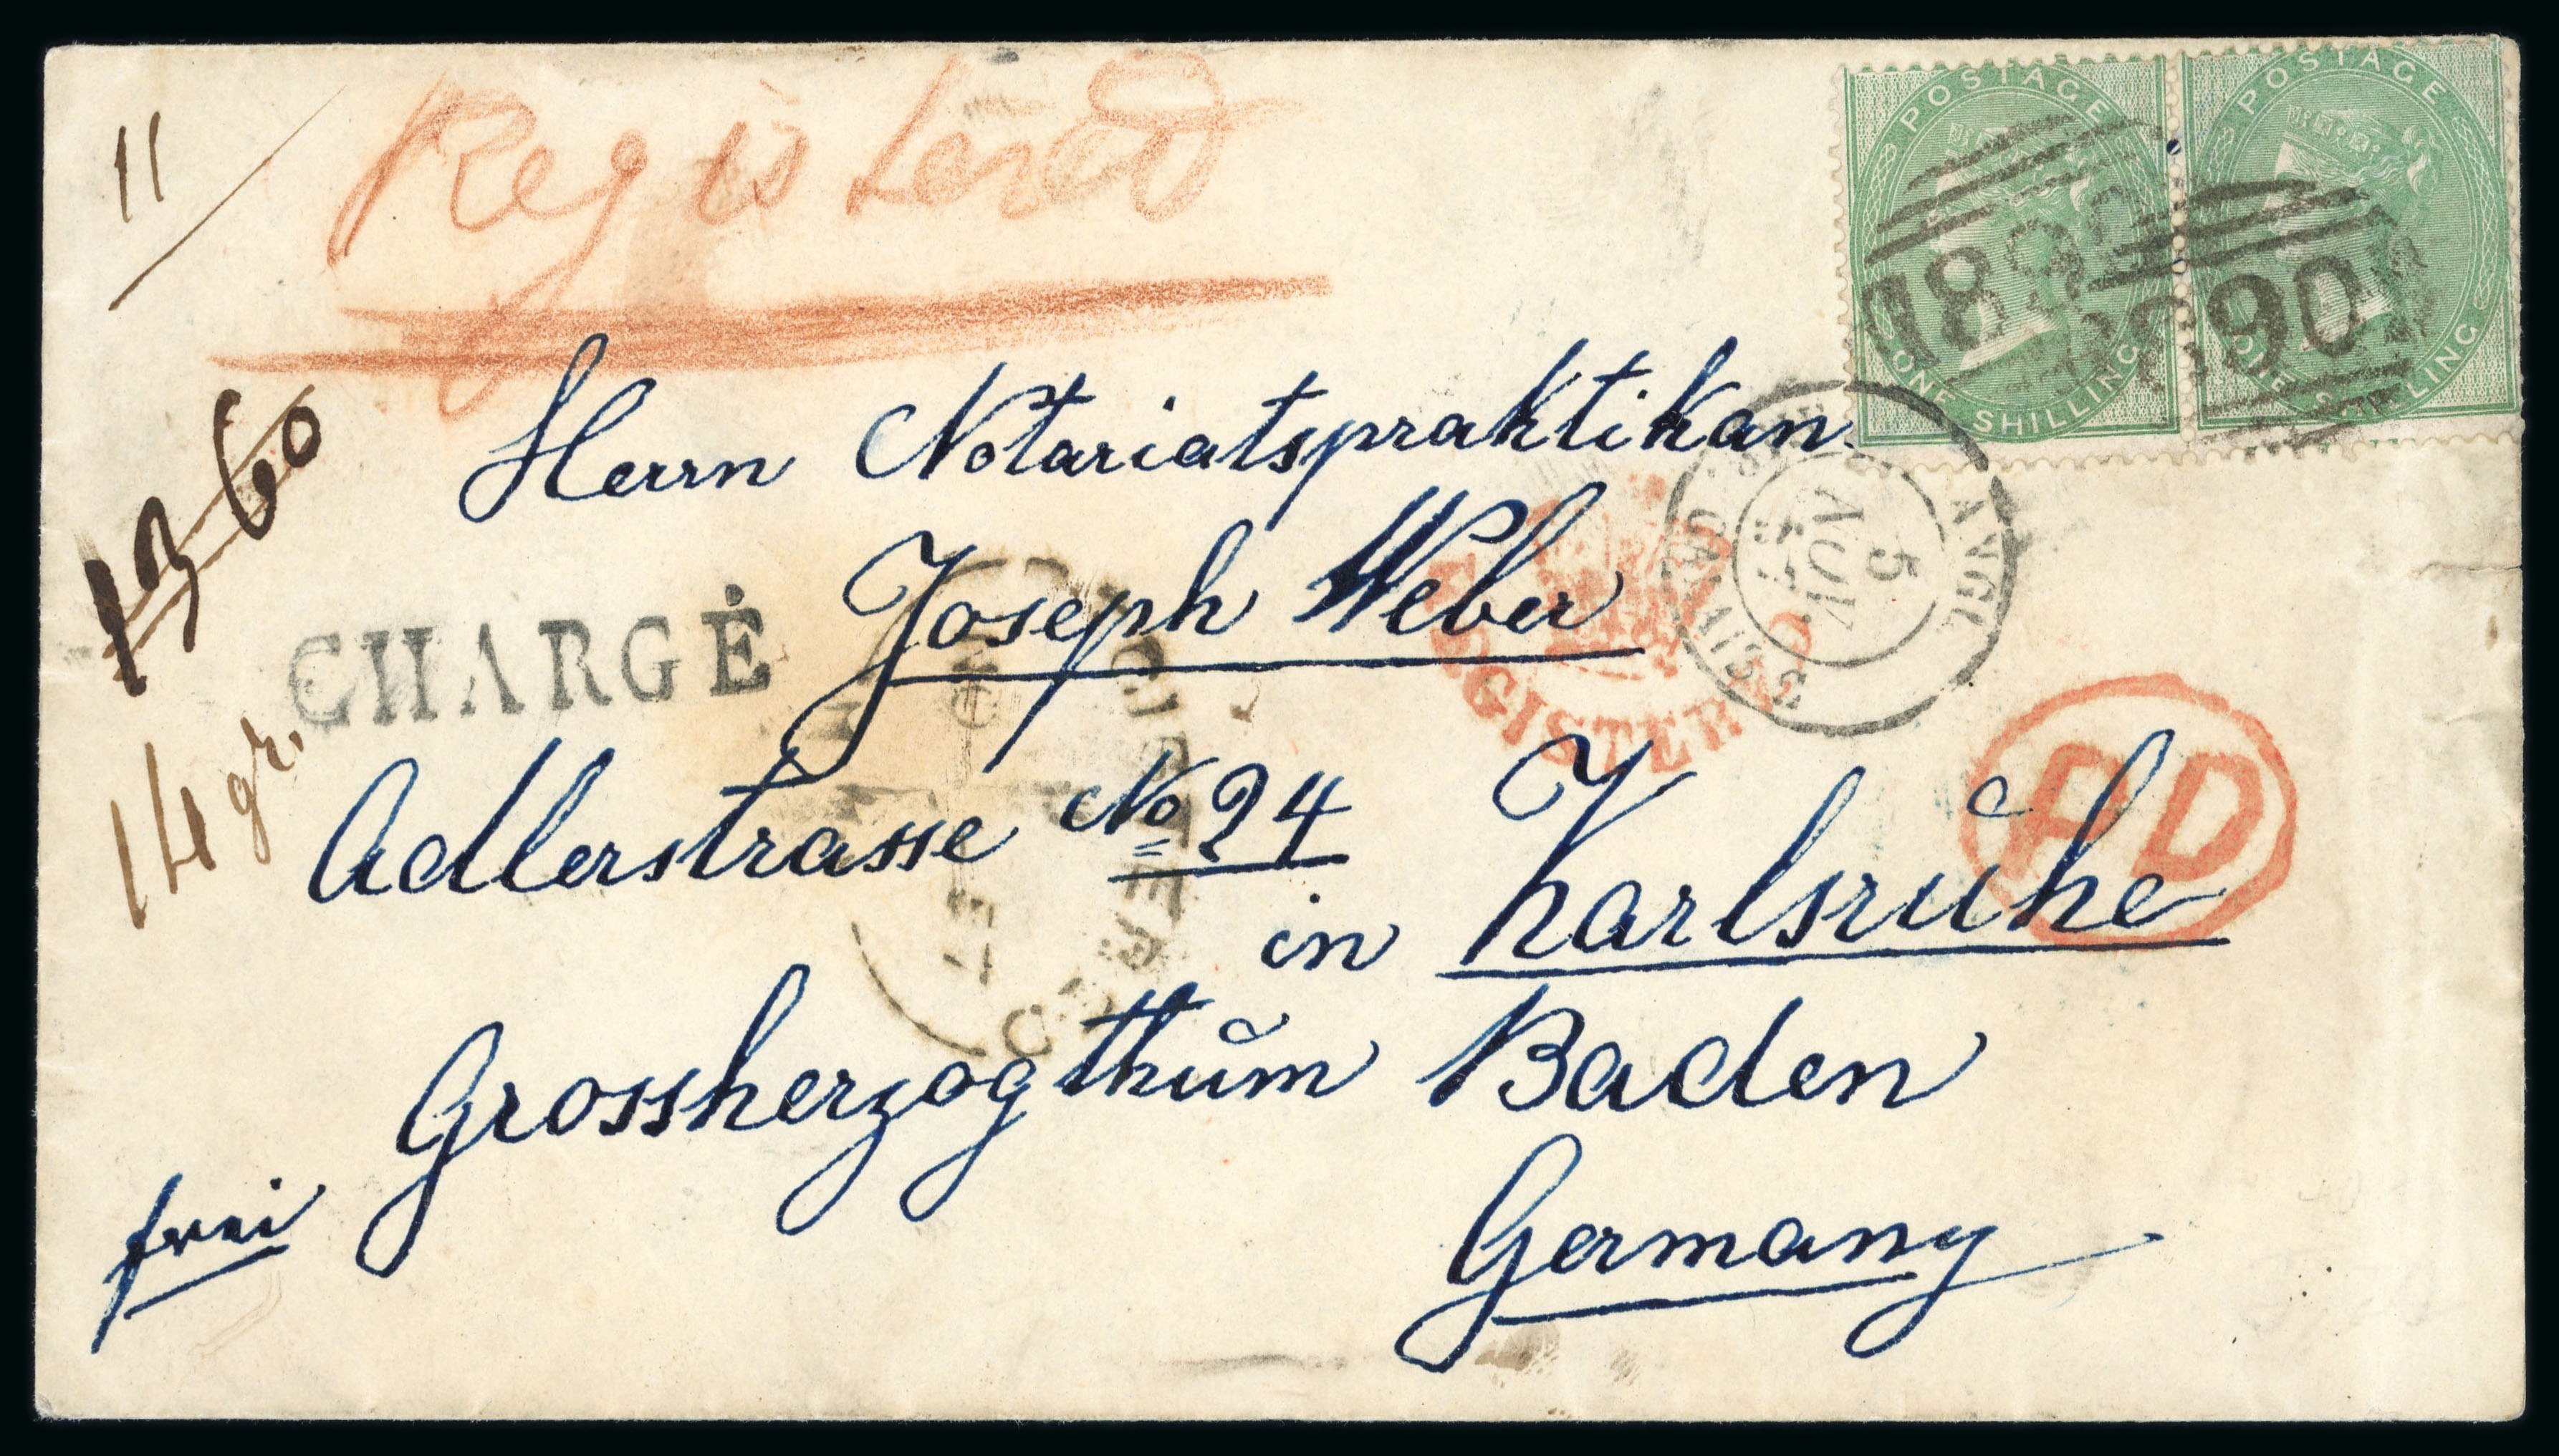 11
Registered
POSTAGE
ONE SHILLING
POSTAGE
ONE SHILLING
890
Herrn Notariatspraktikan
60
Joseph Weber
5
NOV.
CALAIS
CHARGÉ
REGISTERED
14 gr.
PD
Adlerstrasse No 24
in Karlsrŭhe
CIRENCESTER
Grossherzogthŭm Baden
frei
Germany